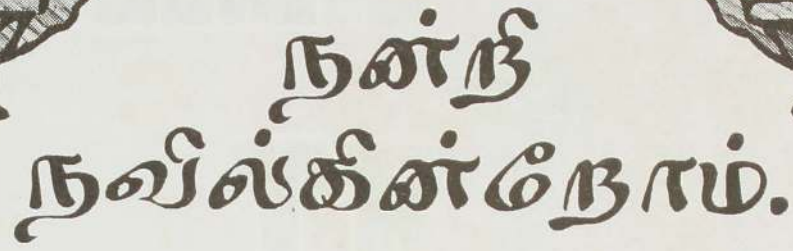 நன்றி
நவில்கின்றோம்.